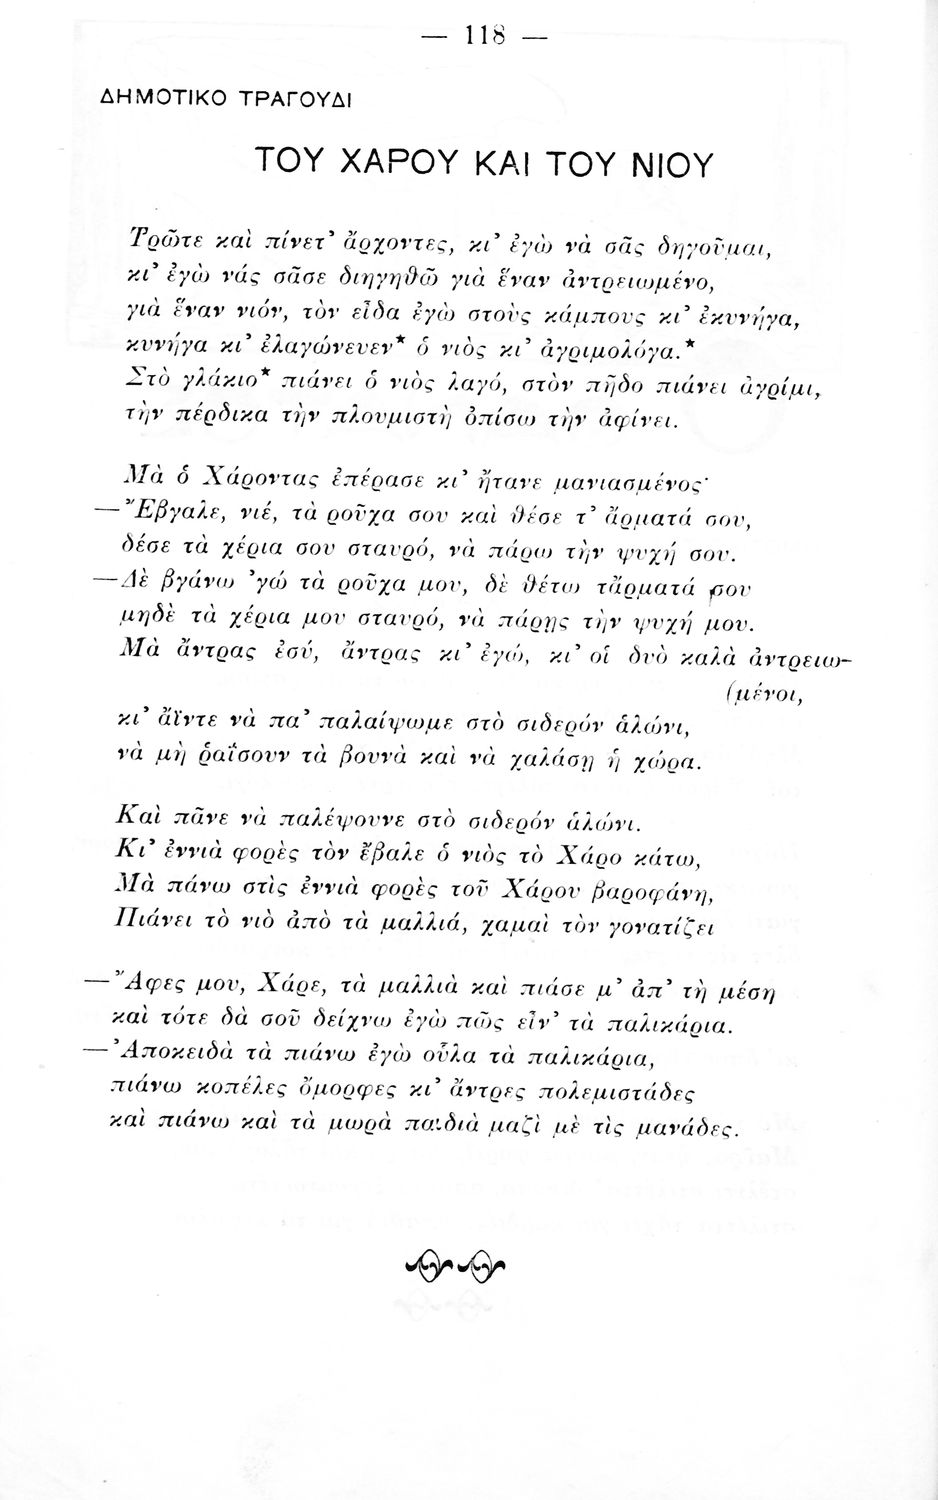 — 118 —
ΔΗΜΟΤΙΚΟ ΤΡΑΓΟΥΔΙ
ΤΟΥ ΧΑΡΟΥ ΚΑΙ ΤΟΥ ΝΙΟΥ
Τρῶτε καὶ πίνετ᾽ ἄρχοντες, κι᾽ ἐγὼ νὰ σᾶς δηγοῦμαι,
κι᾽ ἐγὼ νάς σᾶσε διηγηθῶ γιὰ ἕναν ἀντρειωμένο,
γιὰ ἕναν νιόν, τὸν εἶδα ἐγὼ στοὺς κάμπους κι᾽ ἐκυνήγα,
κυνήγα κι᾽ ἐλαγώνευεν* ὁ νιὸς κι᾽ ἀγριμολόγα.*
Στὸ γλάκιο* πιάνει ὁ νιὸς λαγό, στὸν πῆδο πιάνει ἀγρίμι,
τὴν πέρδικα τὴν πλουμιστὴ ὀπίσω τὴν ἀφίνει.
Μὰ ὁ Χάροντας ἐπέρασε κι᾽ ἤτανε μανιασμένος·
—Ἔβγαλε, νιέ, τὰ ροῦχα σου καὶ θέσε τ᾽ ἄρματά σου,
δέσε τὰ χέρια σου σταυρό, νὰ πάρω τὴν ψυχή σου.
—Δὲ βγάνω ᾽γώ τὰ ροῦχα μου, δὲ θέτω τἄρματά μου
μηδὲ τὰ χέρια μου σταυρό, νὰ πάρῃς τὴν ψυχή μου.
Μὰ ἄντρας ἐσύ, ἄντρας κι᾽ ἐγώ, κι᾽ οἱ δυὸ καλὰ ἀντρειω-
(μένοι,
κι᾽ ἄϊντε νὰ πα᾽ παλαίψωμε στὸ σιδερόν ἁλώνι,
νὰ μὴ ῥαΐσουν τὰ βουνὰ καὶ νὰ χαλάσῃ ἡ χώρα.
Καὶ πᾶνε νὰ παλέψουνε στὸ σιδερόν ἁλώνι.
Κι᾽ ἐννιὰ φορὲς τὸν ἔβαλε ὁ νιὸς τὸ Χάρο κάτω,
Μὰ πάνω στὶς ἐννιὰ φορὲς τοῦ Χάρου βαροφάνη,
Πιάνει τὸ νιὸ ἀπὸ τὰ μαλλιά, χαμαὶ τὸν γονατίζει
—Ἄφες μου, Χάρε, τὰ μαλλιὰ καὶ πιάσε μ᾽ ἀπ᾽ τὴ μέση
καὶ τότε δὰ σοῦ δείχνω ἐγὼ πῶς εἶν᾽ τὰ παλικάρια.
—Ἀποκειδὰ τὰ πιάνω ἐγὼ οὗλα τὰ παλικάρια,
πιάνω κοπέλες ὄμορφες κι᾽ ἄντρες πολεμιστάδες
καὶ πιάνω καὶ τὰ μωρὰ παιδιὰ μαζὶ μὲ τὶς μανάδες.